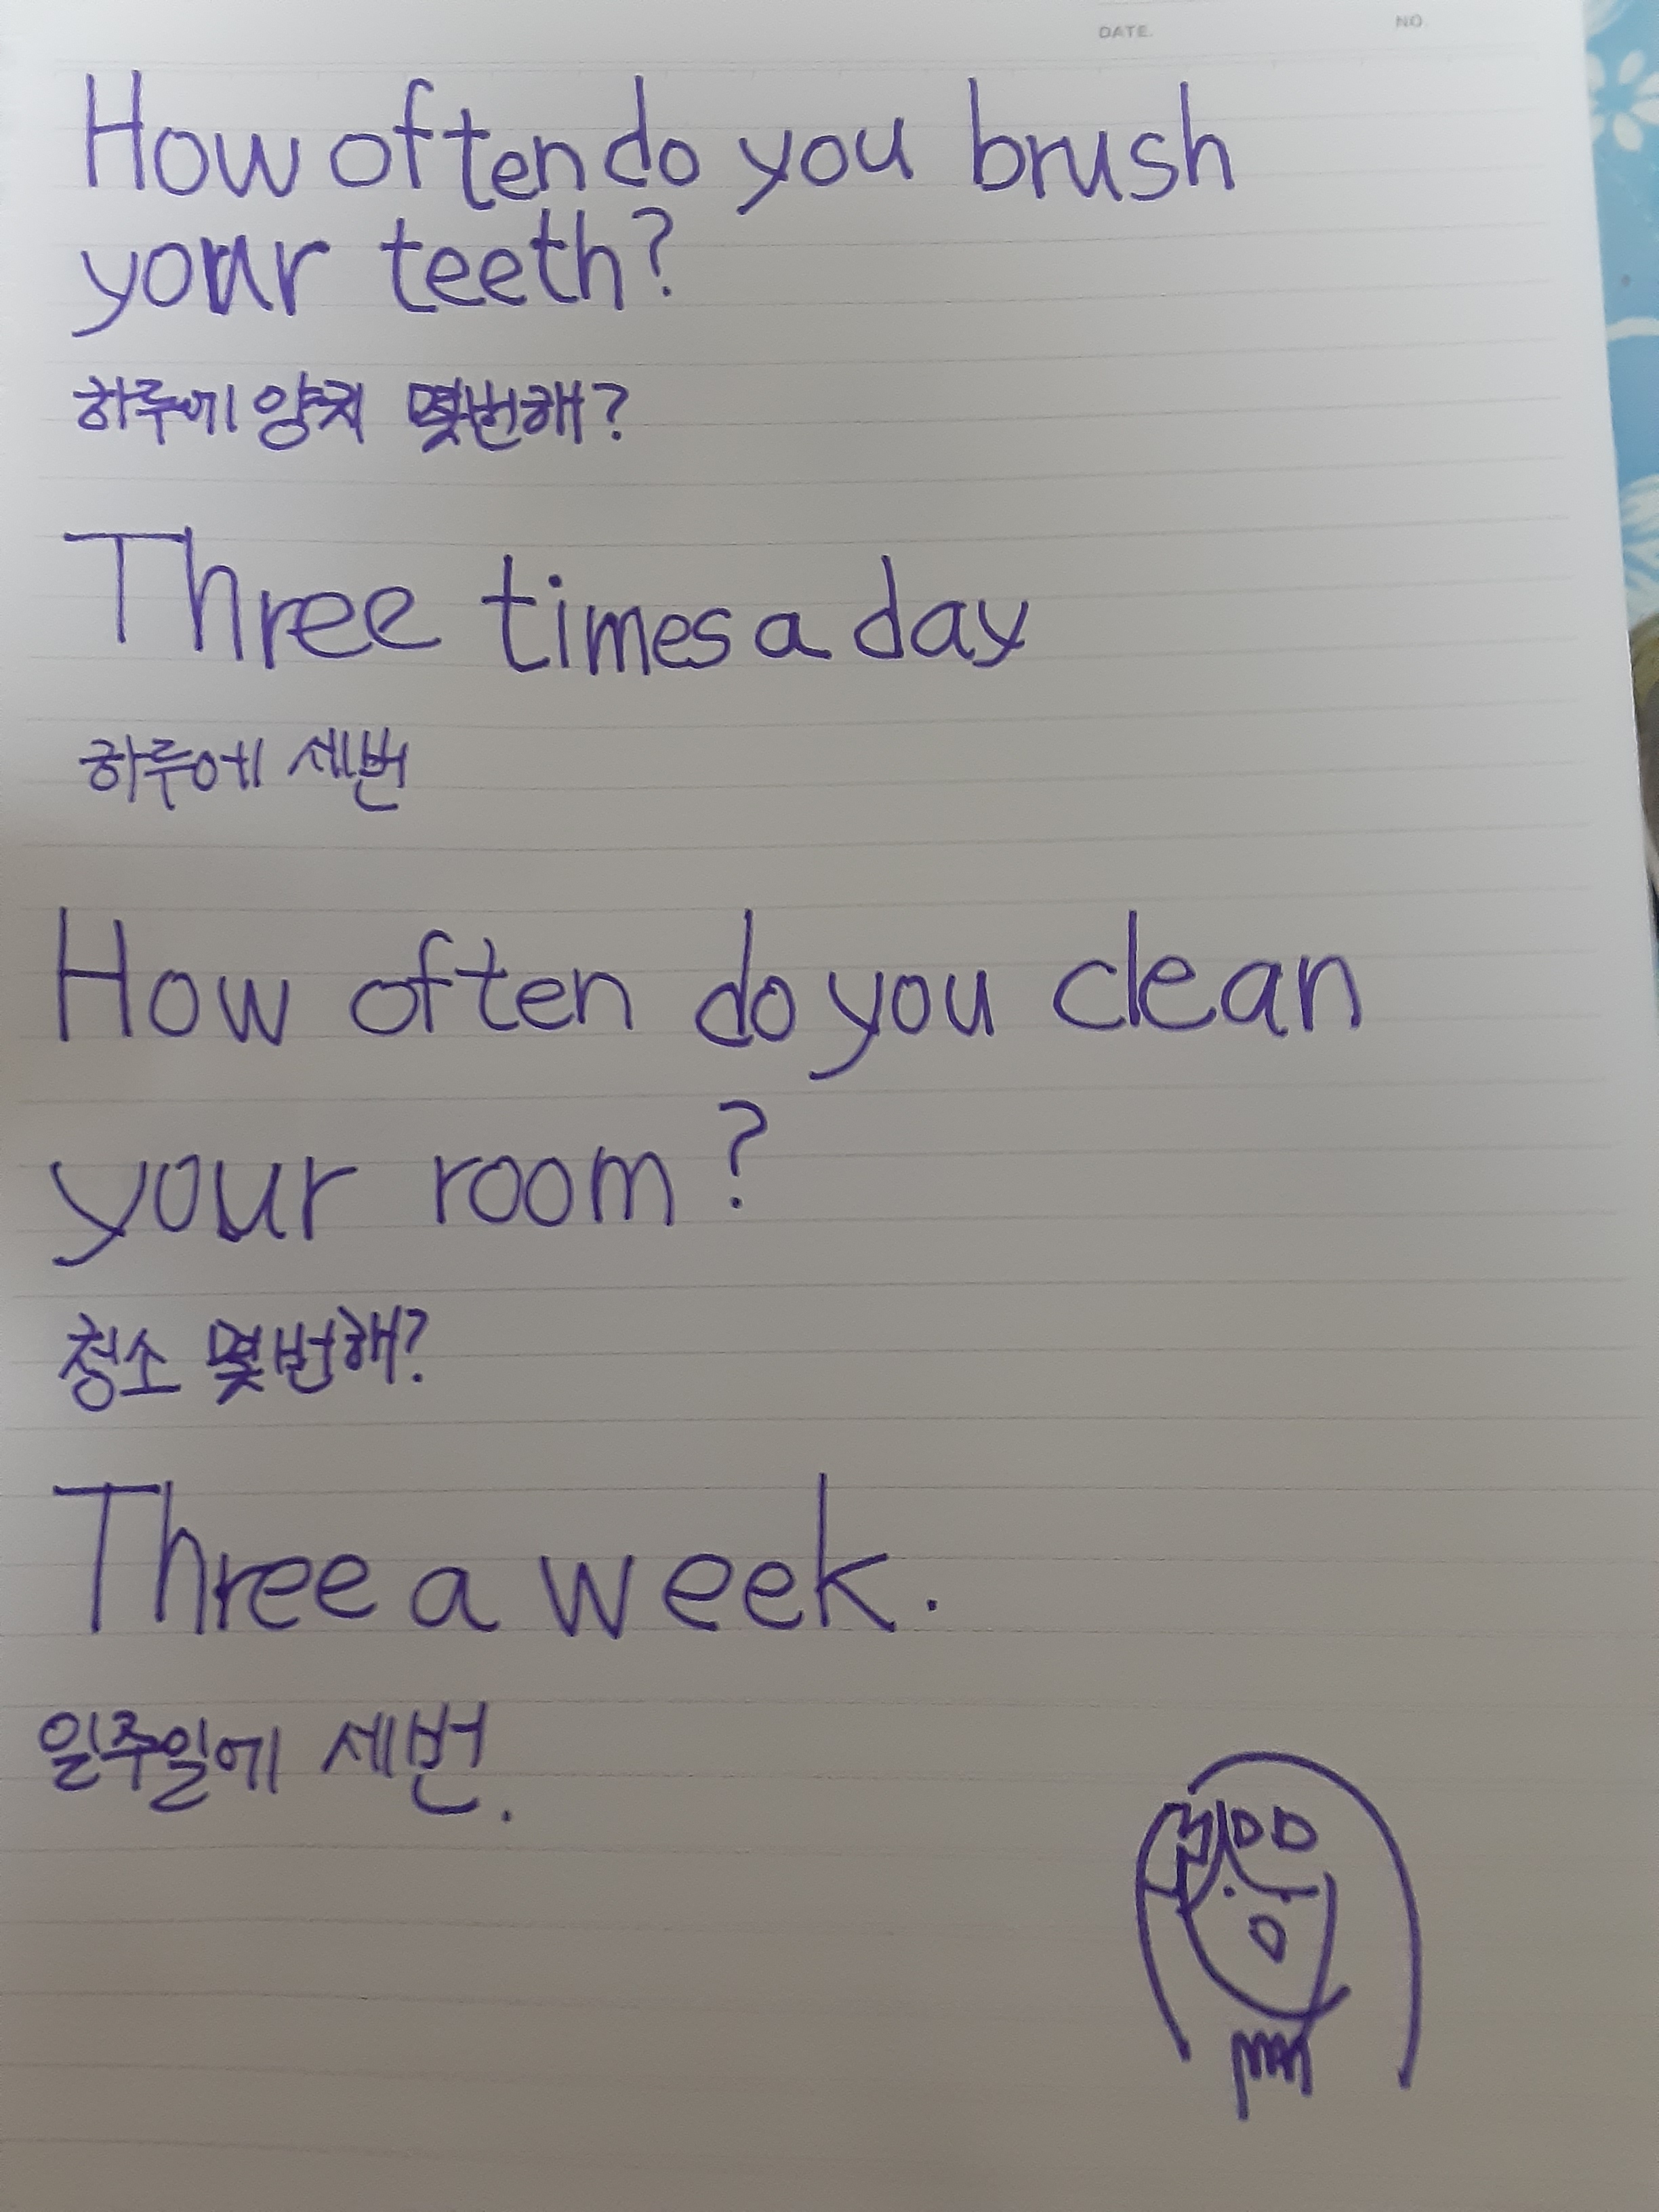 DATE. NO.
How often do you brush
your teeth?
하루에 양치 몇번해?
Three times a day
하루에 세번
How often do you clean
your room?
청소 몇번해?
Three a week.
일주일에 세번.